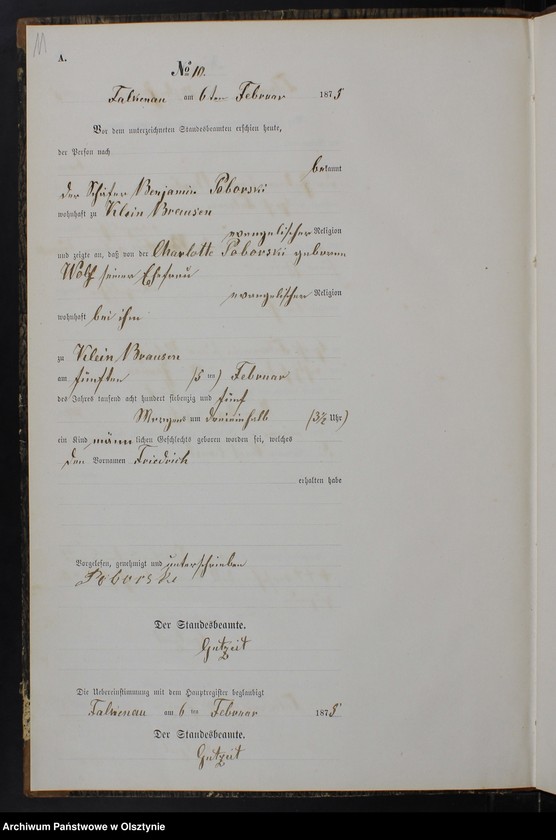 11
A.
№ 10.
Falkenau am 6ten Februar 1875
Vor dem unterzeichneten Standesbeamten erschien heute,
der Person nach
bekannt
der Schäfer Benjamin Poborski
wohnhaft zu Klein Brausen
evangelischer Religion
und zeigte an, daß von der Charlotte Poborski geborenen
Wolf seiner Ehefrau
evangelischer Religion
wohnhaft bei ihm
zu Klein Brausen
am fünften (5 ten) Februar
des Jahres tausend acht hundert siebenzig und fünf
Morgens um dreieinhalb (3½ Uhr)
ein Kind männlichen Geschlechts geboren worden sei, welches
den Vornamen Friedrich
erhalten habe
Vorgelesen, genehmigt und unterschrieben
Poborski
Der Standesbeamte.
Gutzeit
Die Uebereinstimmung mit dem Hauptregister beglaubigt
Falkenau am 6 ten Februar 1875
Der Standesbeamte.
Gutzeit
Archiwum Państwowe w Olsztynie